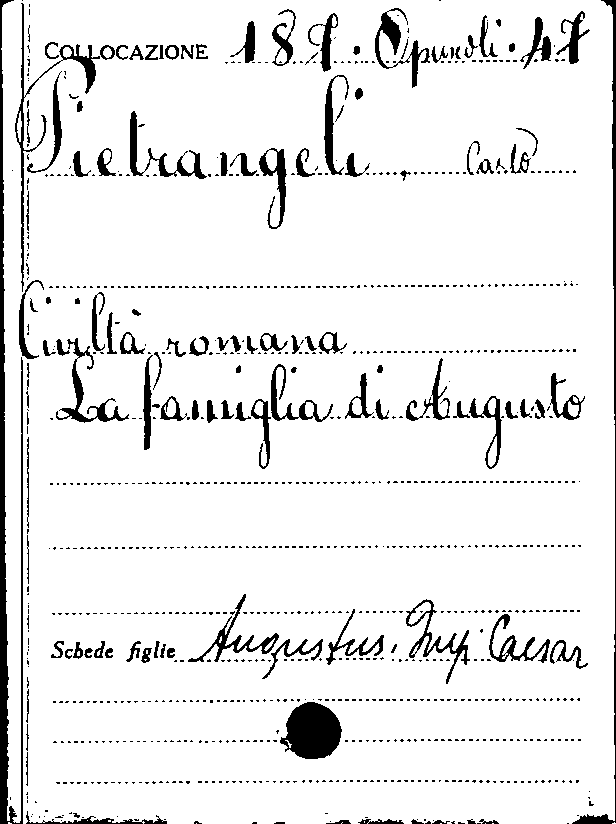 COLLOCAZIONE 187. Opuscoli. 47
Pietrangeli, Carlo
Civiltà romana
La famiglia di Augusto
Schede figlie Augustus. Imp. Caesar